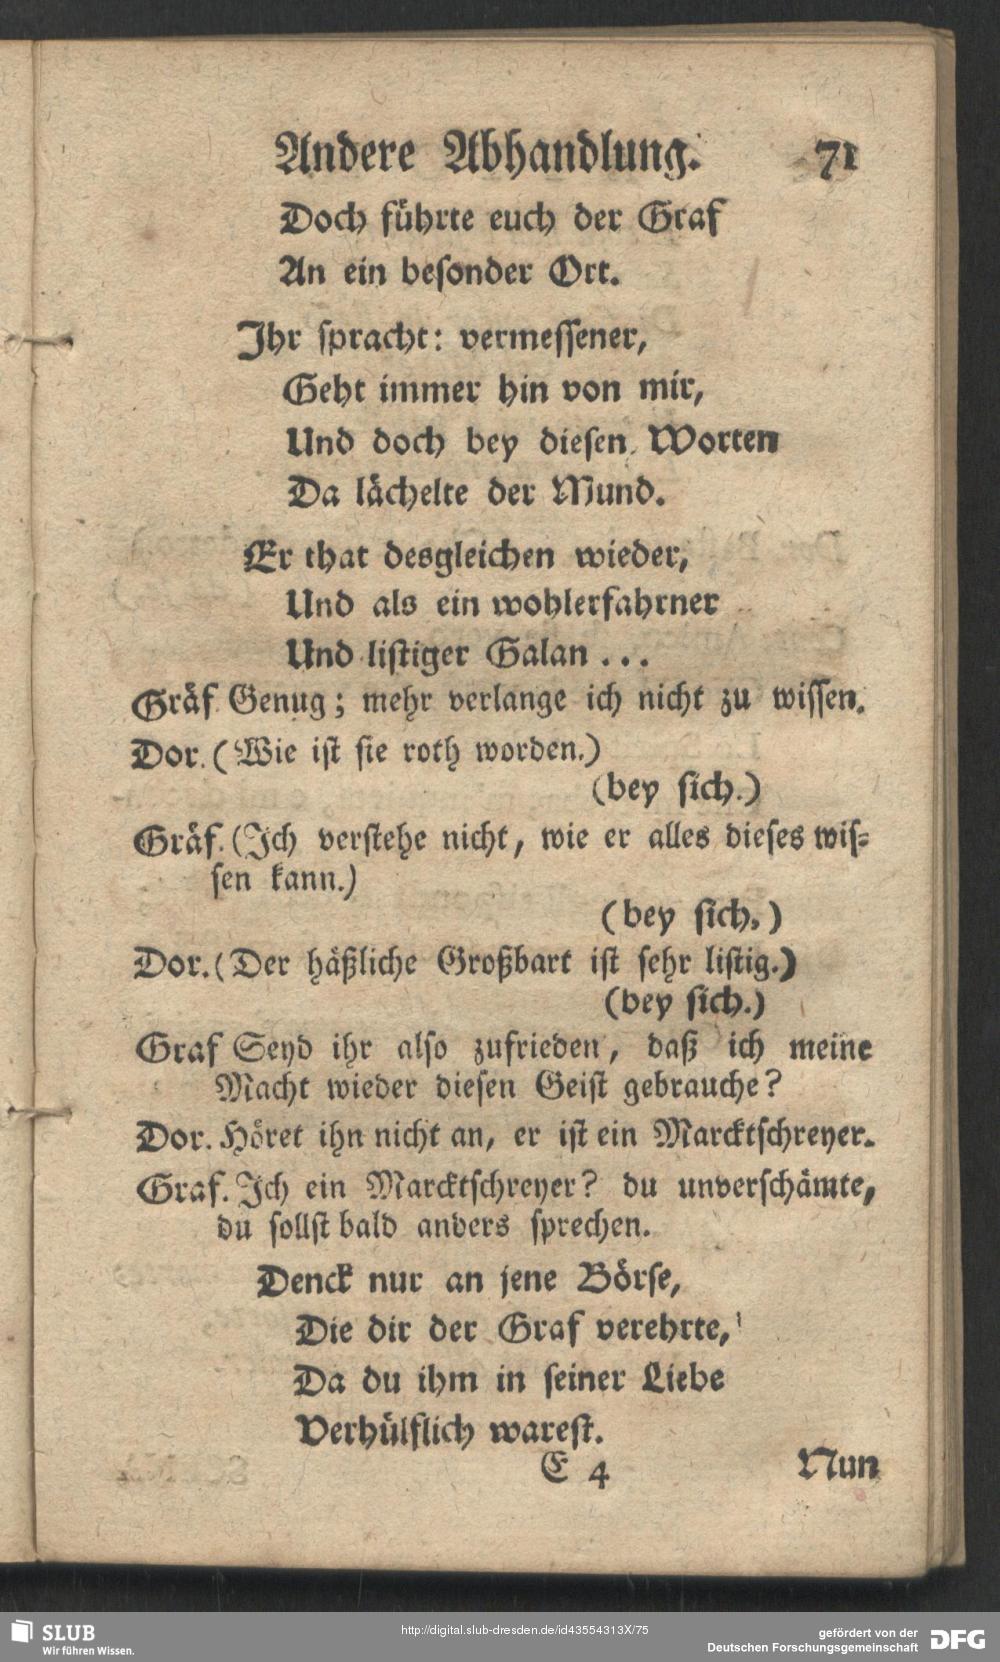 Andere Abhandlung. 71
Doch führte euch der Graf
An ein besonder Ort.
Ihr spracht: vermessener,
Geht immer hin von mir,
Und doch bey diesen Worten
Da lächelte der Mund.
Er that desgleichen wieder,
Und als ein wohlerfahrner
Und listiger Galan ...
Gräf. Genug; mehr verlange ich nicht zu wissen.
Dor. (Wie ist sie roth worden.)
(bey sich.)
Gräf. (Ich verstehe nicht, wie er alles dieses wis=
sen kann.)
(bey sich.)
Dor. (Der häßliche Großbart ist sehr listig.)
(bey sich.)
Graf Seyd ihr also zufrieden, daß ich meine
Macht wieder diesen Geist gebrauche?
Dor. Höret ihn nicht an, er ist ein Marcktschreyer.
Graf. Ich ein Marcktschreyer? du unverschämte,
du sollst bald anders sprechen.
Denck nur an jene Börse,
Die dir der Graf verehrte,
Da du ihm in seiner Liebe
Verhülflich warest.
E 4 Nun
SLUB
Wir führen Wissen.
http://digital.slub-dresden.de/id43554313X/75
gefördert von der
Deutschen Forschungsgemeinschaft
DFG